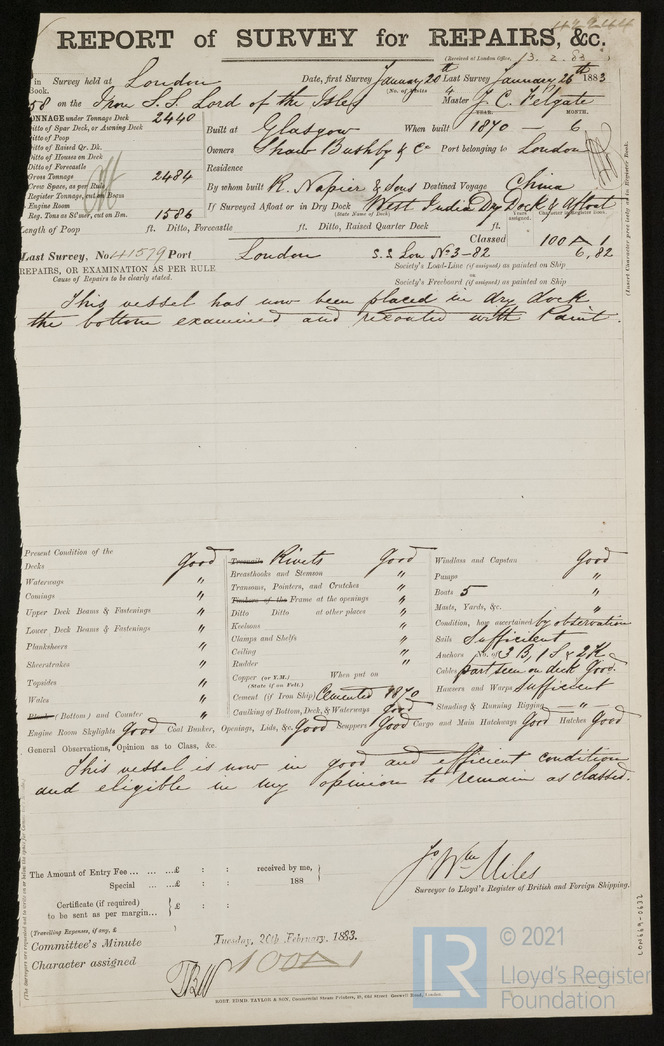 REPORT of SURVEY for REPAIRS, &c.
(Received at London Office, 13. 2. 83)
in Survey held at London Date, first Survey January 20th Last Survey January 26th 1883
Book. (No. of Visits 4)
58 on the Iron S.S. Lord of the Isles Master J. C. Felgate
TONNAGE under Tonnage Deck 2440
YEAR. MONTH.
Ditto of Spar Deck, or Awning Deck Built at Glasgow When built 1870 — 6
Ditto of Poop
Ditto of Raised Qr. Dk. Owners Shaw Bushby & Co Port belonging to London
Ditto of Houses on Deck
Ditto of Forecastle Residence
Gross Tonnage 2484
Crew Space, as per Rule By whom built R. Napier & Sons Destined Voyage China
Register Tonnage, cut on Beam
Engine Room If Surveyed Afloat or in Dry Dock West India Dry Dock & Afloat
(State Name of Dock)
Reg. Tons as St'mer, cut on Bm. 1586
Years assigned. Character in Register Book.
Length of Poop ft. Ditto, Forecastle ft. Ditto, Raised Quarter Deck ft.
Classed 100A1
Last Survey, No. 41579 Port London S.S. Lon No 3-82 6,82
REPAIRS, OR EXAMINATION AS PER RULE Society's Load-Line (if assigned) as painted on Ship
or
Cause of Repairs to be clearly stated. Society's Freeboard (if assigned) as painted on Ship
(Insert Character precisely as in Register Book.
This vessel has now been placed in dry dock
the bottom examined and recoated with Paint.
Present Condition of the
Decks Good
Waterways "
Comings "
Upper Deck Beams & Fastenings "
Lower Deck Beams & Fastenings "
Planksheers "
Sheerstrakes "
Topsides "
Wales "
(Bottom) and Counter "
Treenails Rivets Good
Breasthooks and Stemson "
Transoms, Pointers, and Crutches "
Timbers of the Frame at the openings "
Ditto Ditto at other places "
Keelsons "
Clamps and Shelfs "
Ceiling "
Rudder "
Copper (or Y.M.) When put on
(State if on Felt.)
Cement (if Iron Ship) Cemented 1870
Caulking of Bottom, Deck, & Waterways Good
Windlass and Capstan Good
Pumps "
Boats 5 "
Masts, Yards, &c. "
Condition, how ascertained by observation
Sails Sufficient
Anchors No. of 3 B, 1 S, & 2 K
Cables part seen on deck Good
Hawsers and Warps Sufficient
Standing & Running Rigging — " —
Engine Room Skylights Good Coal Bunker, Openings, Lids, &c. Good Scuppers Good Cargo and Main Hatchways Good Hatches Good
General Observations, Opinion as to Class, &c.
This vessel is now in good and efficient condition
and eligible in my opinion to remain as classed.
The Amount of Entry Fee ... ... ...£ : : received by me,
Special ... ...£ : : 188
Certificate (if required)
to be sent as per margin... }£ : :
(Travelling Expenses, if any, £ )
Jo Wm Miles
Surveyor to Lloyd's Register of British and Foreign Shipping.
Committee's Minute Tuesday, 20th February, 1883.
Character assigned 100A1
LON669-0632
© 2021
LR
Lloyd's Register
Foundation